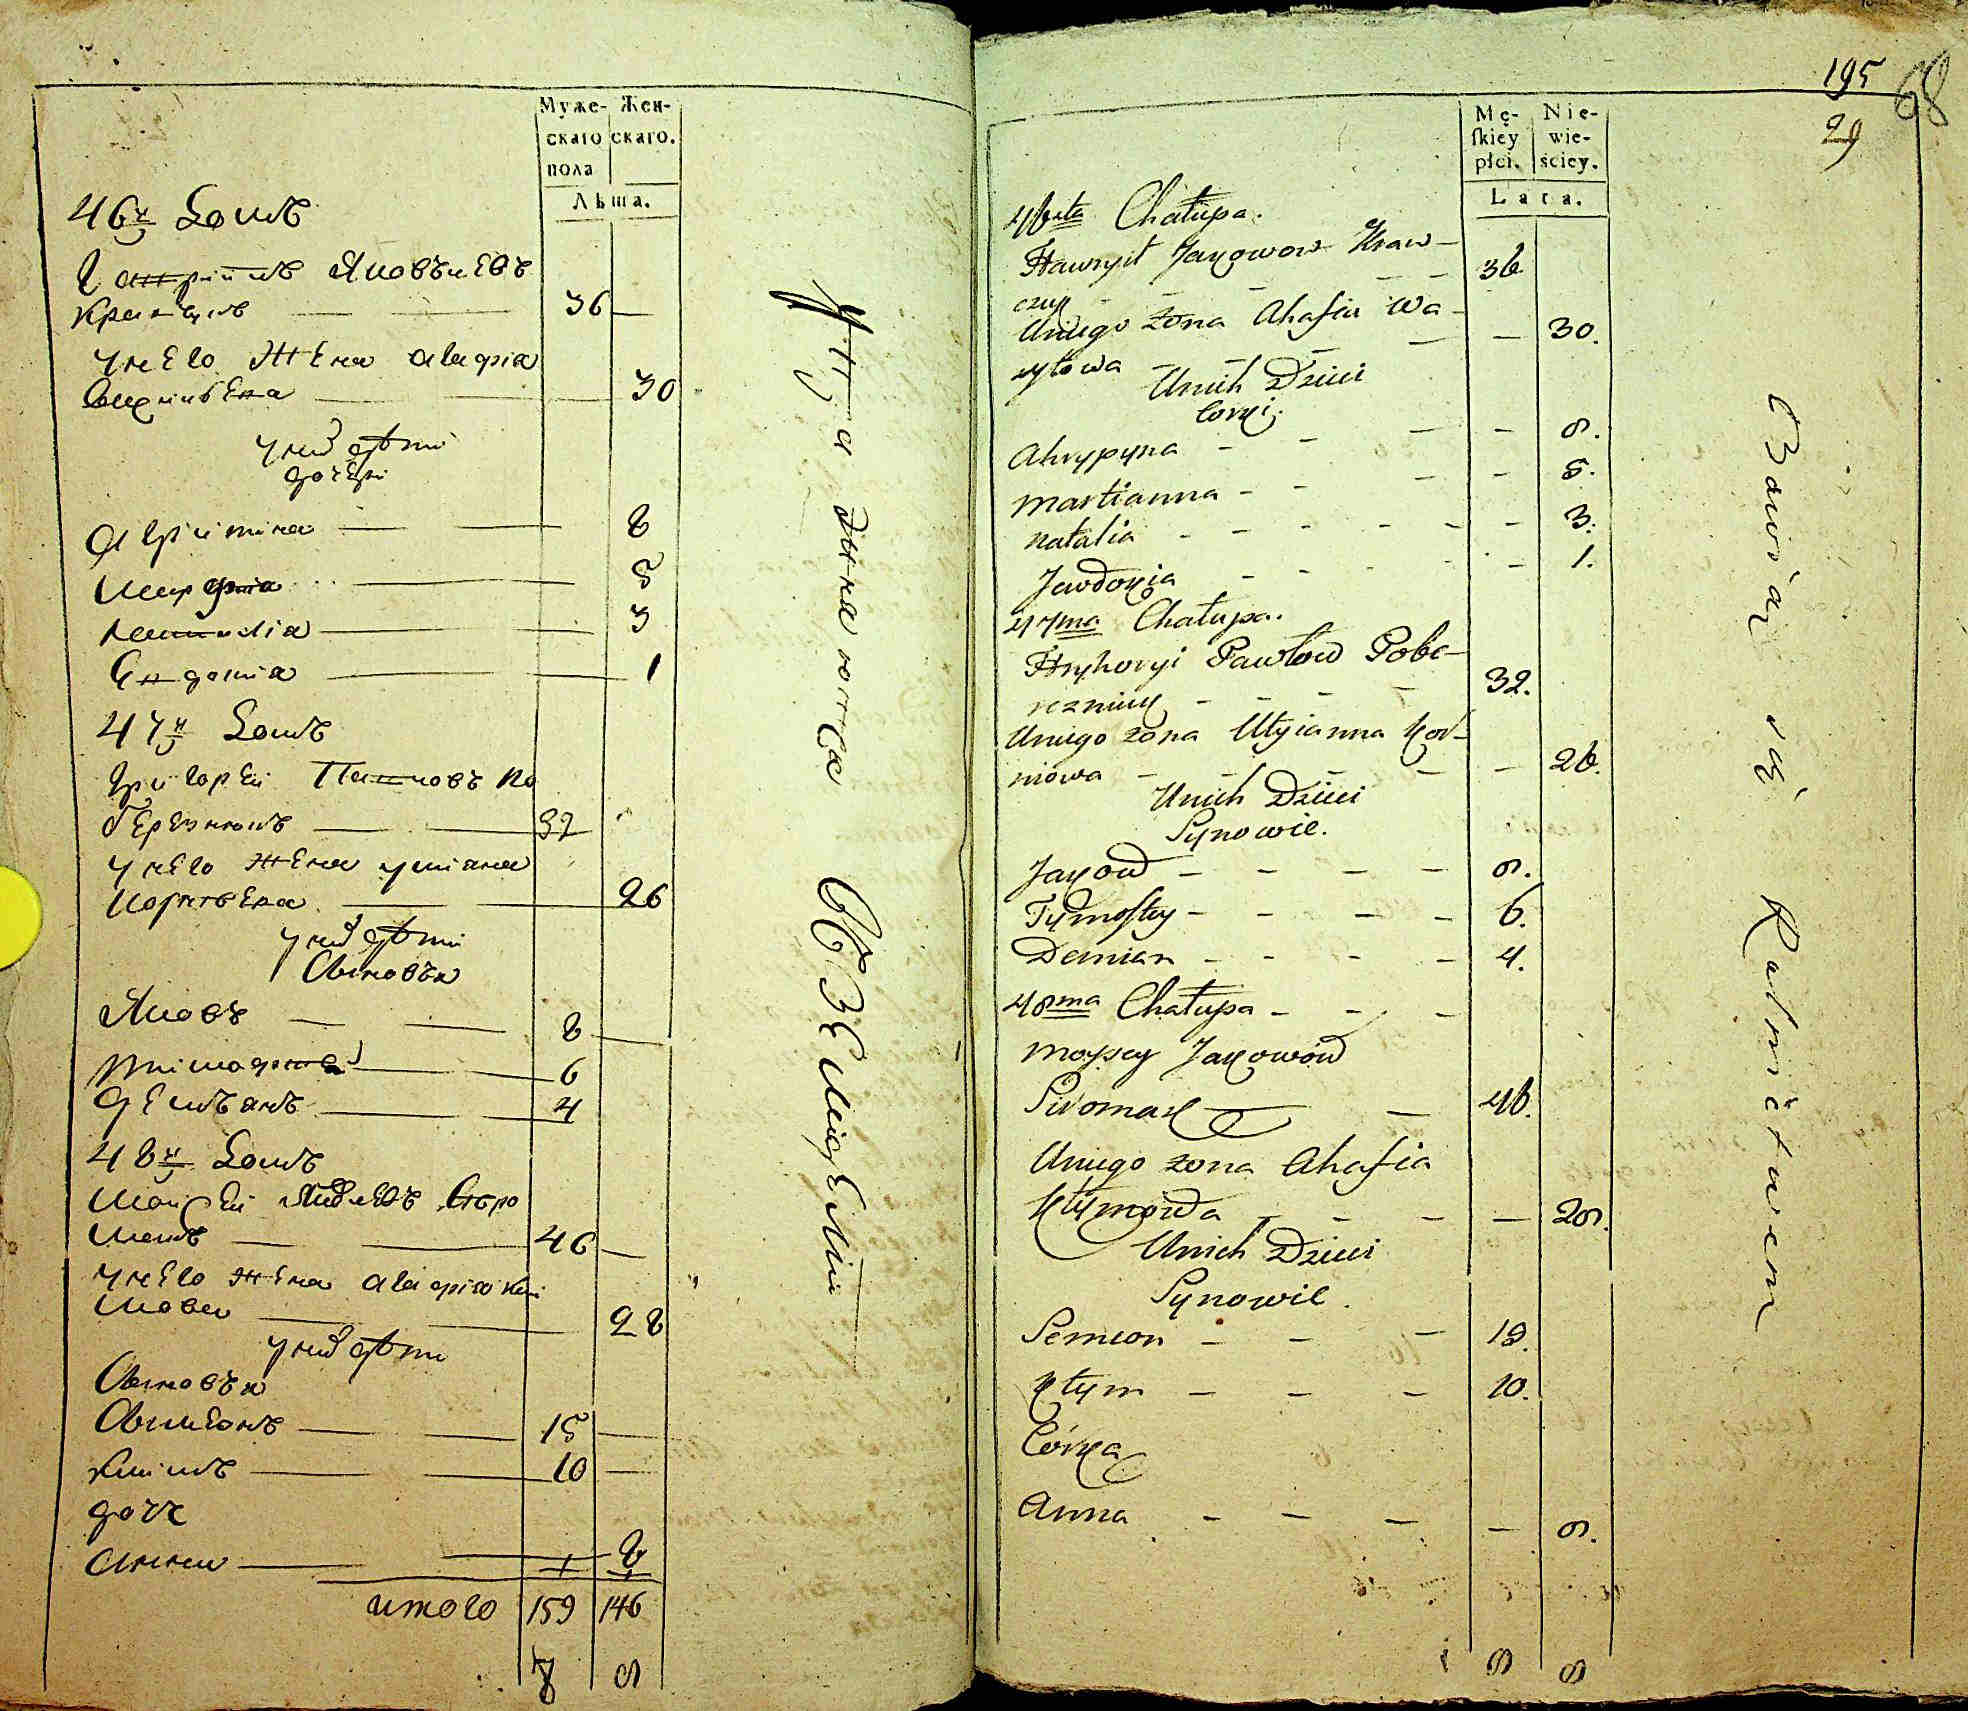 Муже-
скаго
пола
Жен-
скаго.
Лѣта.
46й Домъ
Гавріилъ Яковлевъ
Кравецъ 36
унего жена агафія
30
унихъ дѣти
дочери
агрипина 8
Марфа 5
Наталія 3
Евдокия 1
47й Домъ
Григорей Павловъ По
бережнокъ 32
унего жена улиана
Корнѣевна 26
унихъ дѣти
Сыновья
Яковъ 8
тимофей 6
демьянъ 4
48й Домъ
Мойсей Яковлевъ Сиро
махъ 46
унего жена агафія Кли
мова 28
унихъ дѣти
Сыновья
Симеонъ 15
Климъ 10
дочь
анна 8
итого 159 146
7 8
195
68
29
Mę-
ſkiey
płci.
Nie-
wie-
ściey.
Lata.
46sta Chałupa.
Hawryił Jakowow Kraw-
czuk 36
Uniego żona Ahafia Wa-
syłowa 30.
Unich Dzieci
Corki.
Ahrypyna 8.
Martianna 5.
Natalia 3.
Jewdokia 1.
47ma Chałupa.
Hryhoryi Pawłow Pobe-
rezniuk 32.
Uniego zona Ulyianna Kor-
niowa 26.
Unich Dzieci
Synowie.
Jakow 8.
Tymoftey 6.
Demian 4.
48ma Chałupa
Moysey Jakowow
Siromach 46.
Uniego zona Ahafia
Kłymowa 28.
Unich Dzieci
Synowie.
Semion 15.
Kłym 10.
Córka
Anna 8.
8 8